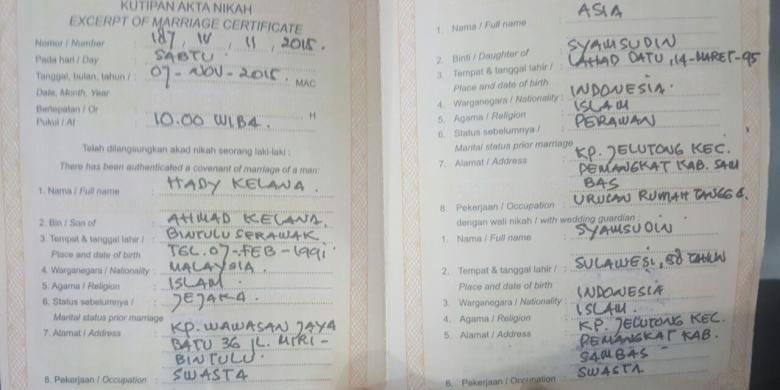 KUTIPAN AKTA NIKAH
EXCERPT OF MARRIAGE CERTIFICATE
Nomor / Number : 187, IV, 11, 2015.
Pada hari / Day : SABTU.
Tanggal, bulan, tahun / : 07-NOV-2015. MAC
Date, Month, Year
Bertepatan / Or : H
Pukul / At : 10.00 WIBA.
Telah dilangsungkan akad nikah seorang laki-laki :
There has been authenticated a covenant of marriage of a man:
1. Nama / Full name : HADY KELANA.
2. Bin / Son of : AHMAD KELANA.
3. Tempat & tanggal lahir / : BINTULU SERAWAK.
Place and date of birth TGL. 07-FEB-1991
4. Warganegara / Nationality : MALAYSIA.
5. Agama / Religion : ISLAM.
6. Status sebelumnya / : JEJAKA.
Marital status prior marriage
7. Alamat / Address : KP. WAWASAN JAYA
BATU 36 JL. MIRI-
BINTULU.
8. Pekerjaan / Occupation : SWASTA
1. Nama / Full name : ASIA
2. Binti / Daughter of : SYAMSUDIN
3. Tempat & tanggal lahir / : LAHAD DATU, 14-MARET-95
Place and date of birth
4. Warganegara / Nationality : INDONESIA.
5. Agama / Religion : ISLAM
6. Status sebelumnya / : PERAWAN
Marital status prior marriage
7. Alamat / Address : KP. JELUTONG KEC.
PEMANGKAT KAB. SAM
BAS
8. Pekerjaan / Occupation : URUSAN RUMAH TANGGA.
dengan wali nikah / with wedding guardian :
1. Nama / Full name : SYAMSUDIN
2. Tempat & tanggal lahir / : SULAWESI, 58 TAHUN
Place and date of birth
3. Warganegara / Nationality : INDONESIA
4. Agama / Religion : ISLAM.
5. Alamat / Address : KP. JELUTONG KEC.
PEMANGKAT KAB.
SAMBAS
6. Pekerjaan / Occupation : SWASTA